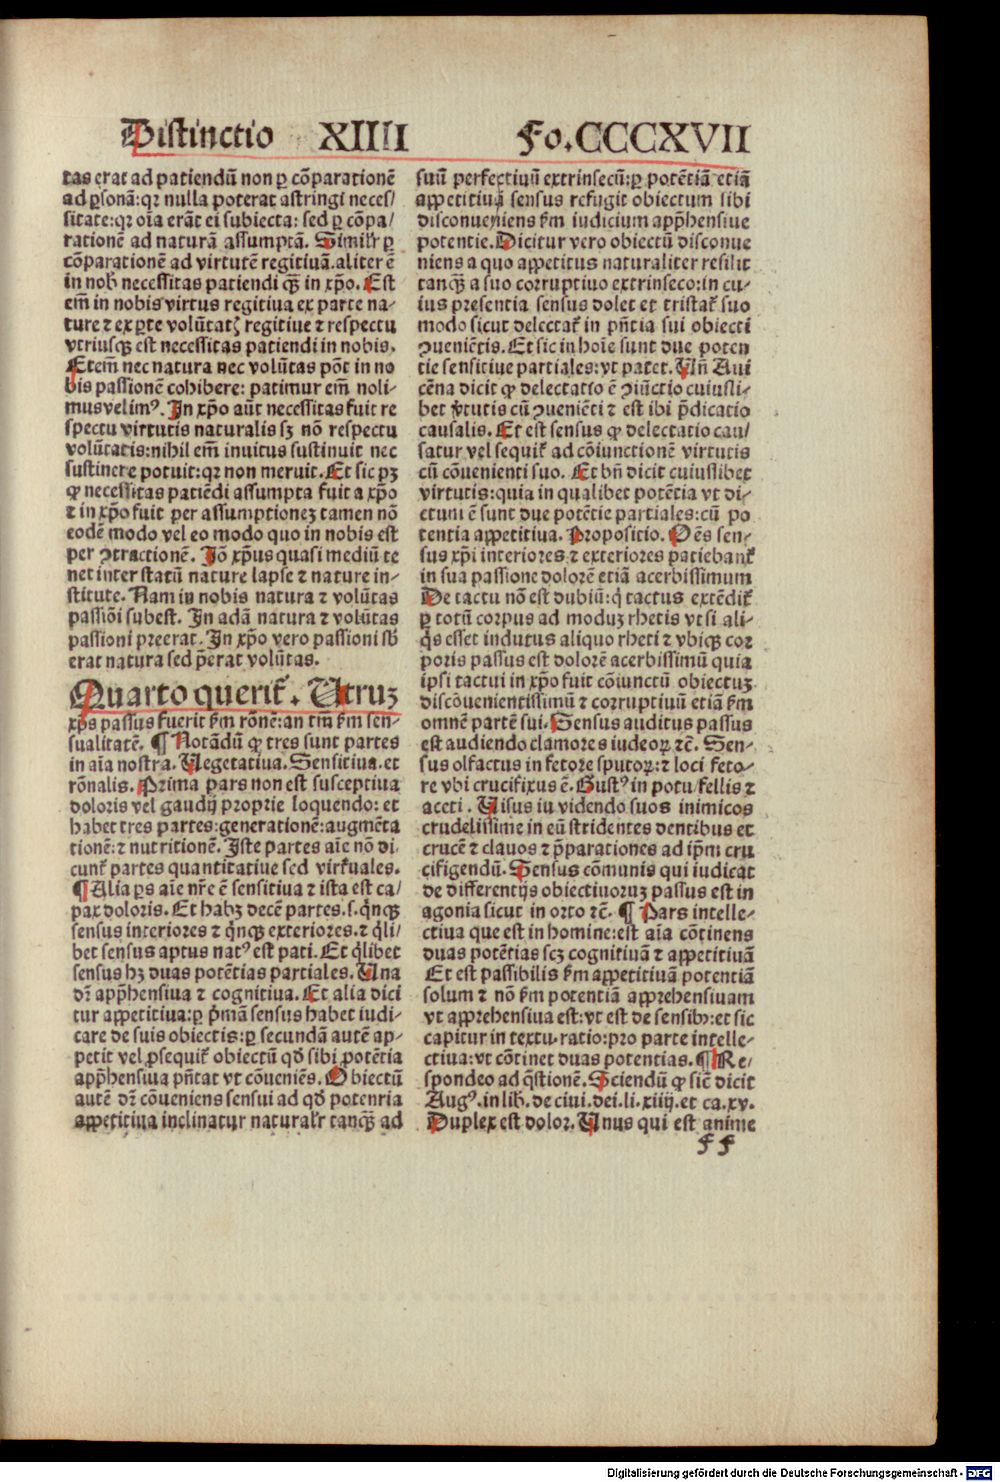 Distinctio XIIII Fo.CCCXVII
tas erat ad patiendū non ꝑ cōparationē
ad ꝑsonā: qꝛ nulla poterat astringi neces/
sitate: qꝛ oīa erāt ei subiecta: sed ꝑ cōpa/
rationē ad naturā assumptā. Similr̄ ꝑ
cōparationē ad virtutē regitiuā. aliter ē
in nob̄ necessitas patiendi qꝫ̄ in xp̄o. Est
em̄ in nobis virtus regitiua ex parte na-
ture ⁊ ex ꝑte volūtatꝭ regitiue ⁊ respectu
vtriusqꝫ est necessitas patiendi in nobis.
Etem̄ nec natura nec volūtas pōt in no
bis passionē cohibere: patimur em̄ noli-
mus velimꝰ. In xp̄o aūt necessitas fuit re
spectu virtutis naturalis sꝫ nō respectu
volūtatis: nihil em̄ inuitus sustinuit nec
sustinere potuit: qꝛ non meruit. Et sic pꝫ
ꝙ necessitas patiēdi assumpta fuit a xp̄o
⁊ in xp̄o fuit per assumptioneꝫ tamen nō
eodē modo vel eo modo quo in nobis est
per ꝯtractionē. Iō xp̄us quasi mediū te
net inter statū nature lapse ⁊ nature in-
stitute. Nam in nobis natura ⁊ volūtas
passiōi subest. In adā natura ⁊ volūtas
passioni preerat. In xp̄o vero passioni sb̄
erat natura sed p̄erat volūtas.
Quarto querit̄. Utruꝫ
xp̄s passus fuerit ẜm rōnē: an tm̄ ẜm sen-
sualitatē. ¶ Notādū ꝙ tres sunt partes
in aīa nostra. Vegetatiua. Sensitiua. et
rōnalis. Prima pars non est susceptiua
doloris vel gaudij proprie loquendo: et
habet tres partes: generationē: augmēta
tionē: ⁊ nutritionē. Iste partes aīe nō di
cunt̄ partes quantitatiue sed virtuales.
¶ Alia ꝑs aīe nr̄e ē sensitiua ⁊ ista est ca/
pax doloris. Et habꝫ decē partes. s. qͥnqꝫ
sensus interiores ⁊ qͥnqꝫ exteriores. ⁊ qͥli/
bet sensus aptus natꝰ est pati. Et qͥlibet
sensus hꝫ duas potētias partiales. Una
dr̄ app̄hensiua ⁊ cognitiua. Et alia dici
tur appetitiua: ꝑ pͥmā sensus habet iudi-
care de suis obiectis: ꝑ secundā autē ap-
petit vel ꝓsequit̄ obiectū qd̄ sibi potētia
app̄hensiua pn̄tat vt cōueniēs. Obiectū
autē dr̄ cōueniens sensui ad qd̄ potentia
appetitiua inclinatur naturalr̄ tanqꝫ̄ ad
suū perfectiuū extrinsecū: ꝑ potētiā etiā
appetitiuā sensus refugit obiectum sibi
disconueniens ẜm iudicium app̄hensiue
potentie. Dicitur vero obiectū disconue
niens a quo appetitus naturaliter resilit
tanqꝫ̄ a suo corruptiuo extrinseco: in cu-
ius presentia sensus dolet et tristat̄ suo
modo sicut delectat̄ in pn̄tia sui obiecti
ꝯueniētis. Et sic in hoīe sunt due poten
tie sensitiue partiales: vt patet. Un̄ Aui
cēna dicit ꝙ delectatio ē ꝯiūctio cuiusli-
bet v̓tutis cū ꝯueniēti ⁊ est ibi p̄dicatio
causalis. Et est sensus ꝙ delectatio cau/
satur vel sequit̄ ad cōiunctionē virtutis
cū cōuenienti suo. Et bn̄ dicit cuiuslibet
virtutis: quia in qualibet potētia vt di-
ctum ē sunt due potētie partiales: cū po
tentia appetitiua. Propositio. Oēs sen-
sus xp̄i interiores ⁊ exteriores patiebant̄
in sua passione dolorē etiā acerbissimum
De tactu nō est dubiū: qꝛ tactus extēdit̄
ꝑ totū corpus ad moduꝫ rhetis vt si ali-
qͥs esset indutus aliquo rheti ⁊ vbiqꝫ cor
poris passus est dolorē acerbissimū quia
ipsi tactui in xp̄o fuit cōiunctū obiectuꝫ
discōuenientissimū ⁊ corruptiuū etiā ẜm
omnē partē sui. Sensus auditus passus
est audiendo clamores iudeoꝝ ⁊c̄. Sen-
sus olfactus in fetore sputoꝝ: ⁊ loci feto-
re vbi crucifixus ē. Gustꝰ in potu fellis ⁊
aceti. Visus in videndo suos inimicos
crudelissime in eū stridentes dentibus et
crucē ⁊ clauos ⁊ p̄parationes ad ip̄m cru
cifigendū. Sensus cōmunis qui iudicat
de differentijs obiectiuoruꝫ passus est in
agonia sicut in orto ⁊c̄. ¶ Pars intelle-
ctiua que est in homine: est aīa cōtinens
duas potētias scꝫ cognitiuā ⁊ appetitiuā
Et est passibilis ẜm appetitiuā potentiā
solum ⁊ nō ẜm potentiā apprehensiuam
vt apprehensiua est: vt est de sensibꝫ: et sic
capitur in textu. ratio: pro parte intelle-
ctiua: vt cōtinet duas potentias. ¶ Re/
spondeo ad qͣstionē. Sciendū ꝙ sic̄ dicit
Augꝰ. in lib̄. de ciui. dei. li. xiiij. et ca. xv.
Duplex est dolor. Unus qui est anime
ff
Digitalisierung gefördert durch die Deutsche Forschungsgemeinschaft - DFG